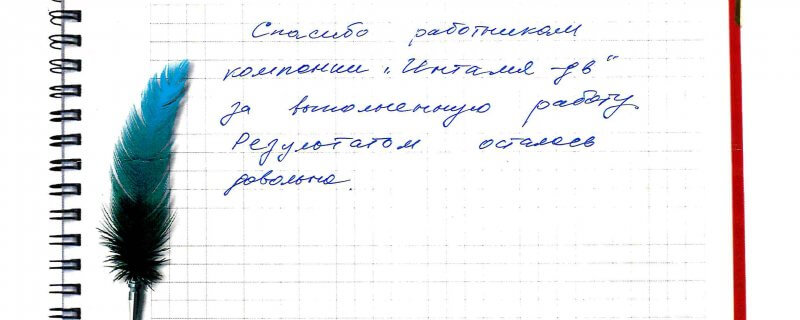 Спасибо работникам
компании "Инталия-ДВ"
за выполненную работу
Результатом осталась
довольна.